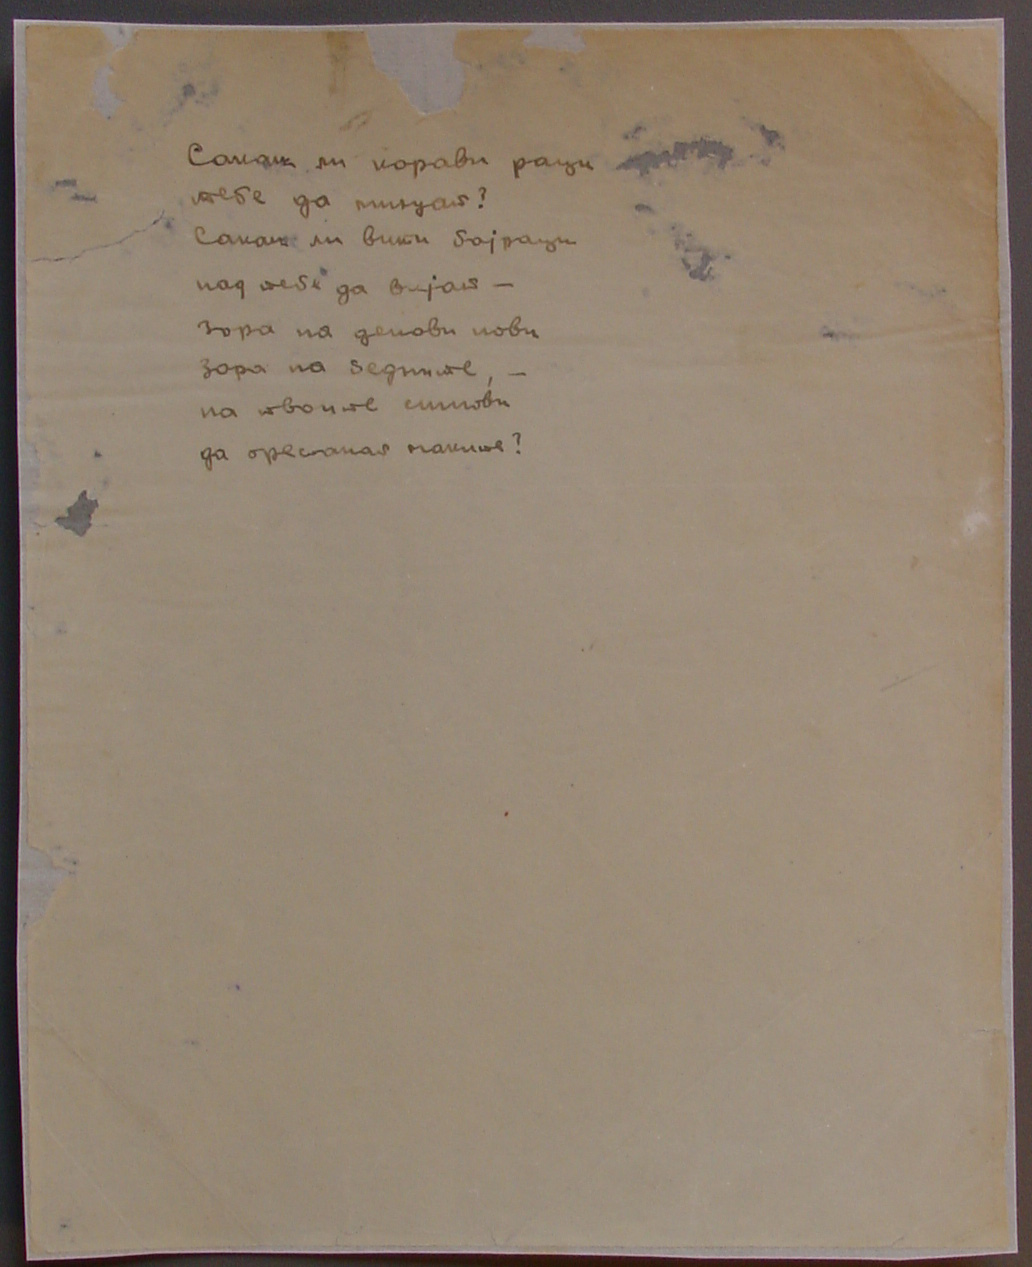 Сакаш ли корави раци
тебе да милуат?
Сакаш ли вити бајраци
над тебе да вијат —
зора на денови нови
зора на бедните, —
на твоите синови
да престанат маките?